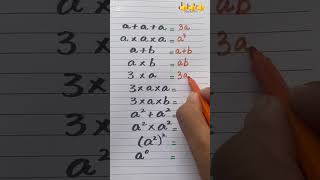 a + a + a = 3a
a × a × a = a³
a + b = a+b
a × b = ab
3 × a = 3a
3 × a × a =
3 × a × b =
a² + a² =
a² × a² =
(a²)² =
a⁰ =
ab
3a